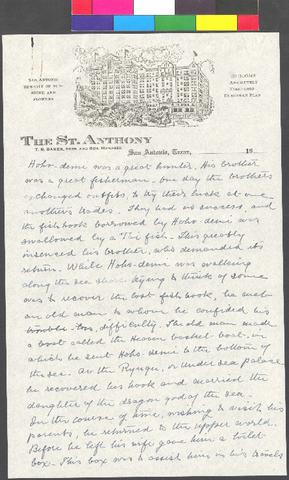 SAN ANTONIO
THE CITY OF SUN-
SHINE AND
FLOWERS
ABSOLUTELY
FIREPROOF
EUROPEAN PLAN
THE ST. ANTHONY
San Antonio, Texas, 19
Hoho-demi was a great hunter. His brother
was a great fisherman. One day the brothers
exchanged outfits, to try their luck at one
another's trades. They had no success, and
the fish hook borrowed by Hoho-demi was
swallowed by a Tai fish. This greatly
incensed his brother, who demanded its
return. While Hoho-demi was walking
along the sea shore trying to think of some
way to recover the lost fish hook, he met
an old man to whom he confided his
difficulty. The old man made
a boat called the Heaven basket-boat, in
which he sent Hoho-demi to the bottom of
the sea. At the Ryugu, or under sea palace
he recovered his hook and married the
daughter of the dragon god of the sea.
In the course of time, wishing to visit his
parents, he returned to the upper world.
Before he left his wife gave him a toilet
box. This box was to assist him in his travels